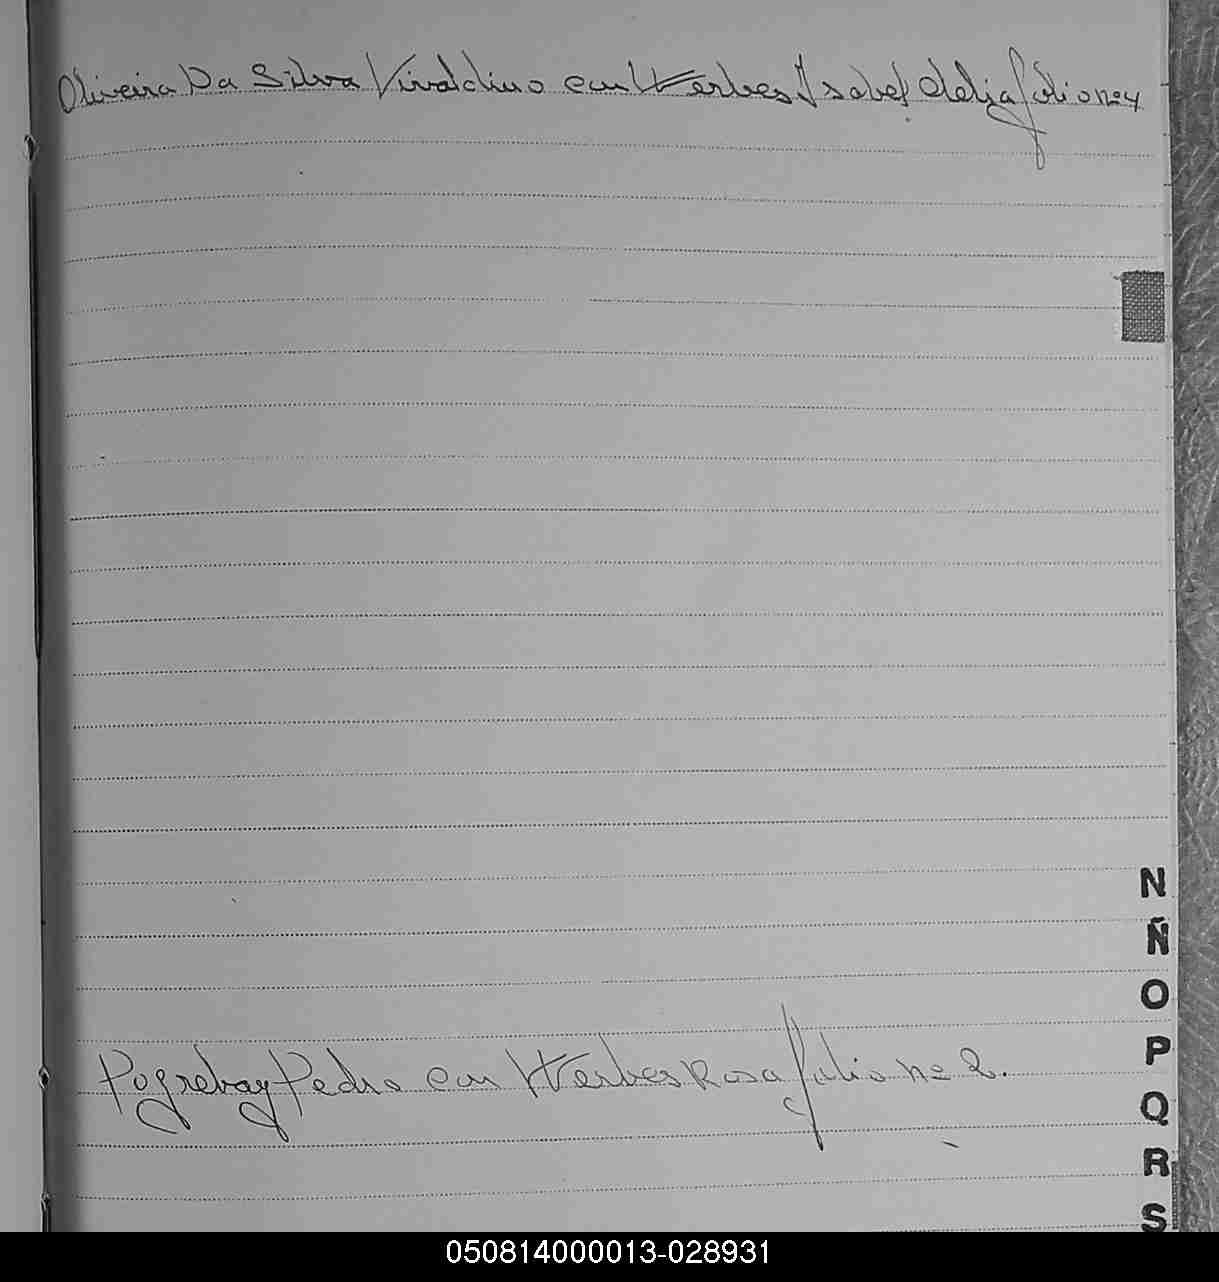 Oliveira Da Silva Vivaldino con Werbes Isabel Delia folio nº 4
N
Ñ
O
Pogrebay Pedro con Werbes Rosa folio nº 2.
P
Q
R
S
050814000013-028931